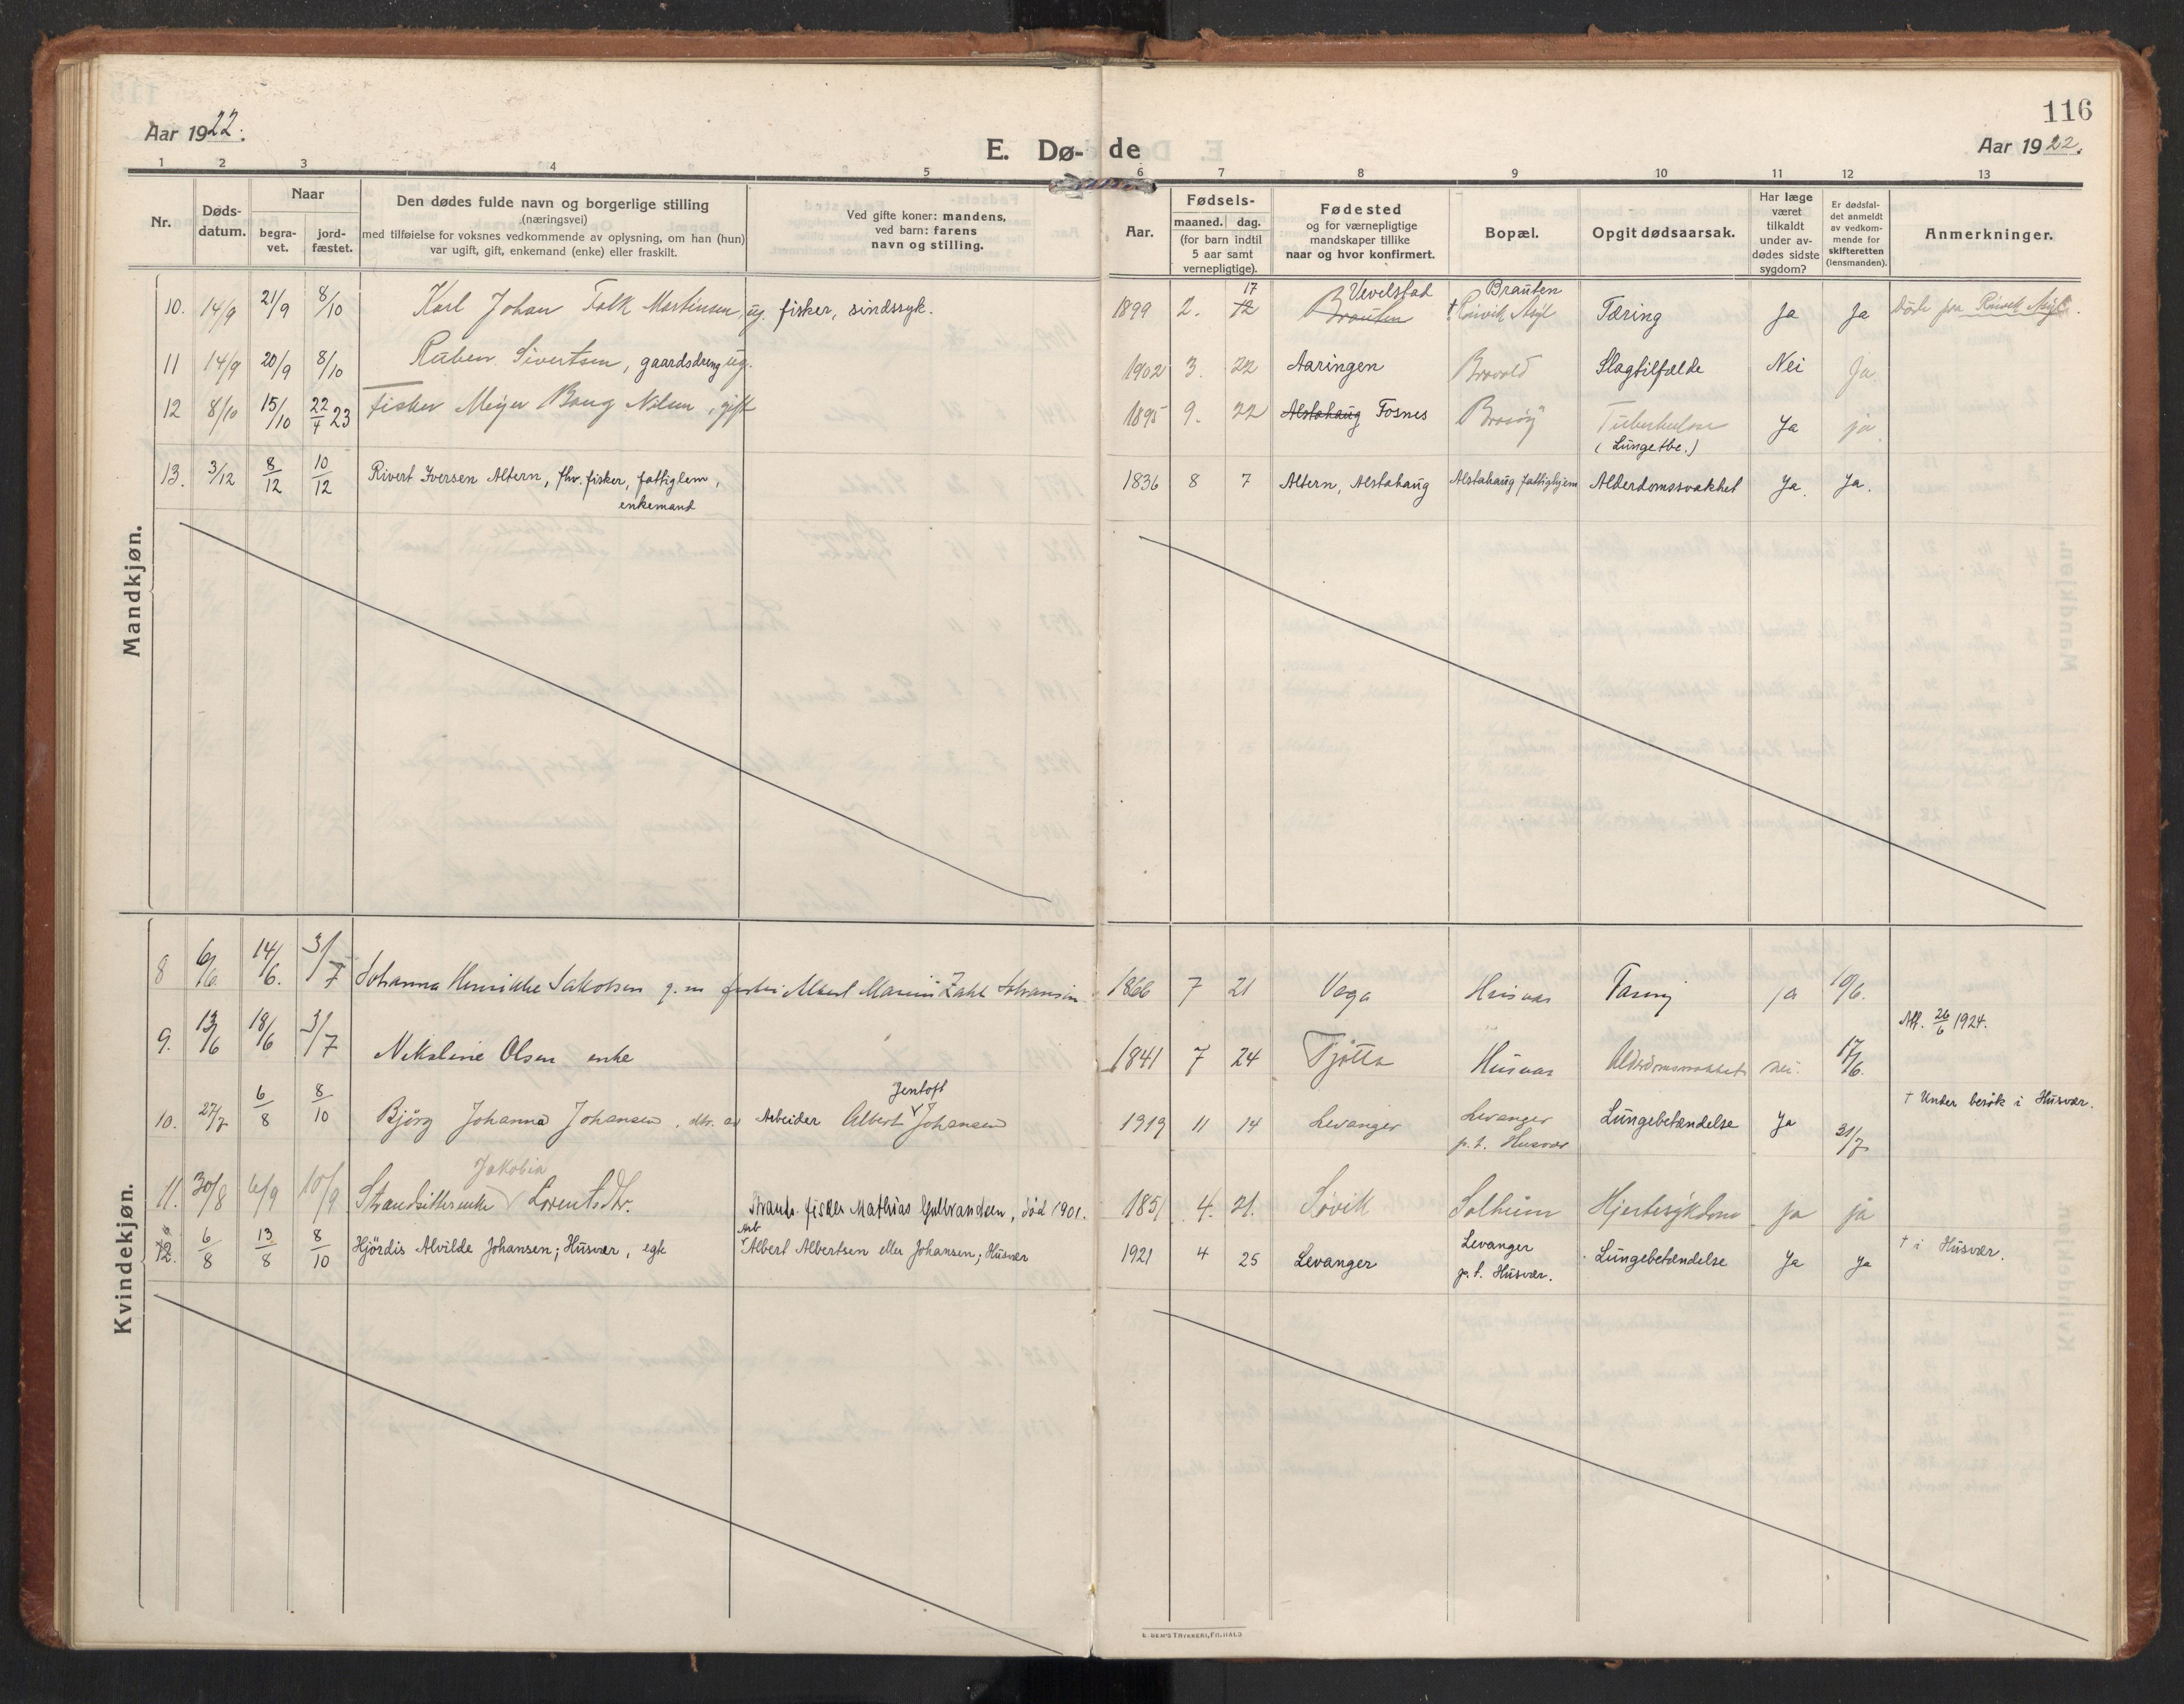 116
Aar 1922.
E. Dø- de
Aar 1922.
1 2 3 4 5 6 7 8 9 10 11 12 13
Nr.
Døds-
datum.
Naar
begra-
vet.
jord-
fæstet.
Den dødes fulde navn og borgerlige stilling
(næringsvei)
med tilføielse for voksnes vedkommende av oplysning, om han (hun)
var ugift, gift, enkemand (enke) eller fraskilt.
Ved gifte koner: mandens,
ved barn: farens
navn og stilling.
Aar.
Fødsels-
maaned. dag.
(for barn indtil
5 aar samt
vernepligtige).
Fødested
og for værnepligtige
mandskaper tillike
naar og hvor konfirmert.
Bopæl.
Opgit dødsaarsak.
Har læge
været
tilkaldt
under av-
dødes sidste
sygdom?
Er dødsfal-
det anmeldt
av vedkom-
mende for
skifteretten
(lensmanden).
Anmerkninger.
Mandkjøn.
17 Vevelstad Brauten
10. 14/9 21/9 8/10 Karl Johan Falk Martinsen, ug. fisker, sindssyk. 1899 2. 12 Brauten † Rönvik Asyl Tæring Ja Ja Döde paa Rönvik Asyl.
11 14/9 20/9 8/10 Ruben Sivertsen, gaardsdreng ug. 1902 3. 22 Aaringen Brovold Slagtilfælde Nei Ja
12 8/10 15/10 22/4 23 Fisker Meyer Baug Nilsen, gift 1895 9. 22 Alstahaug Fosnes Brasöy Tuberkulose Ja ja
(Lungetbc.)
13. 3/12 8/12 10/12 Rivert Iversen Altern, fhv. fisker, fattiglem, 1836 8 7 Altern, Alstahaug Alstahaug fattighjem Alderdomssvakhet Ja. Ja.
enkemand
Kvindekjøn.
8 6/6. 14/6. 3/7 Johanna Henrikke Jakobsen g. m. fisker Albert Marius Zahl Johansen 1866 7 21 Vega Husvær Tæring ja 10/6.
Aff. 26/6 1924.
9. 13/6 18/6 3/7 Nikoline Olsen enke 1841 7 24 Tjøtta Husvær Alderdomssvakhet nei. 17/6.
Jentoft
10. 27/7 6/8 8/10 Bjørg Johanna Johansen, dtr. av Arbeider Albert Johansen 1919 11 14 Levanger Levanger Lungebetændelse Ja 31/7 † Under besök i Husvær.
p. t. Husvær
Jakobia
11. 30/8 6/9 10/9 Strandsitterenke Lorentsdtr. Strands. fisker Mathias Gulbrandsen, död 1901. 1851 4. 21. Søvik Solheim Hjertesykdom ja ja
Arb
12. 6/8 13/8 8/10 Hjördis Alvilde Johansen; Husvær, egte Albert Albertsen eller Johansen; Husvær 1921 4 25 Levanger Levanger Lungebetændelse Ja Ja † i Husvær.
p. t. Husvær.
E. SEM'S TRYKKERI, FR.HALD